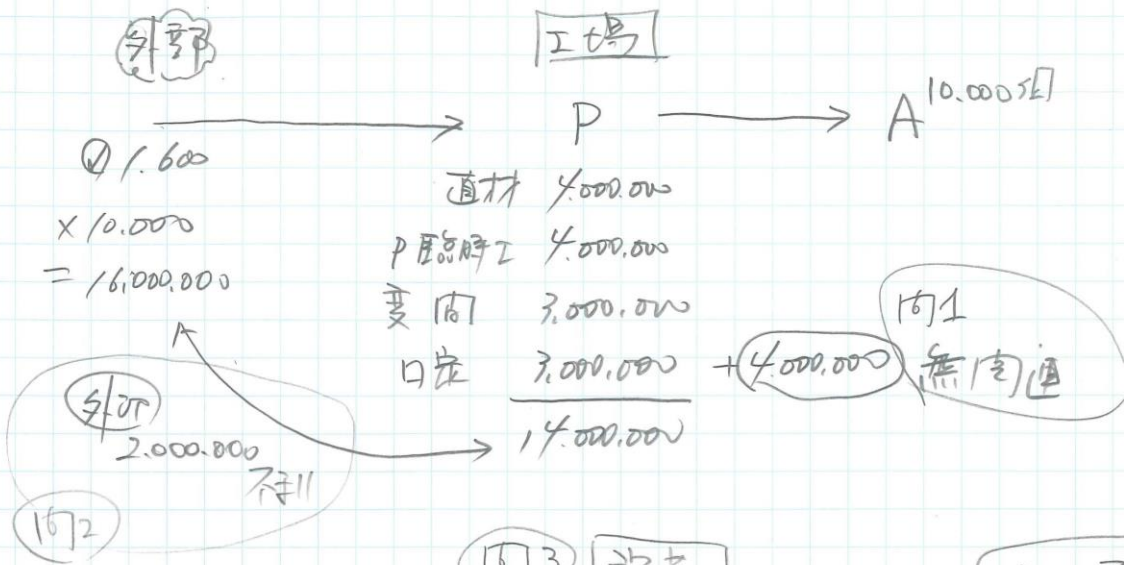 外部
工場
P
A 10,000個
@1,600
×10,000
=16,000,000
直材 4,000,000
P臨時工 4,000,000
変間 3,000,000
固定 3,000,000 + 4,000,000
14,000,000
問1
無関連
外注
2,000,000
不利
問2
問3